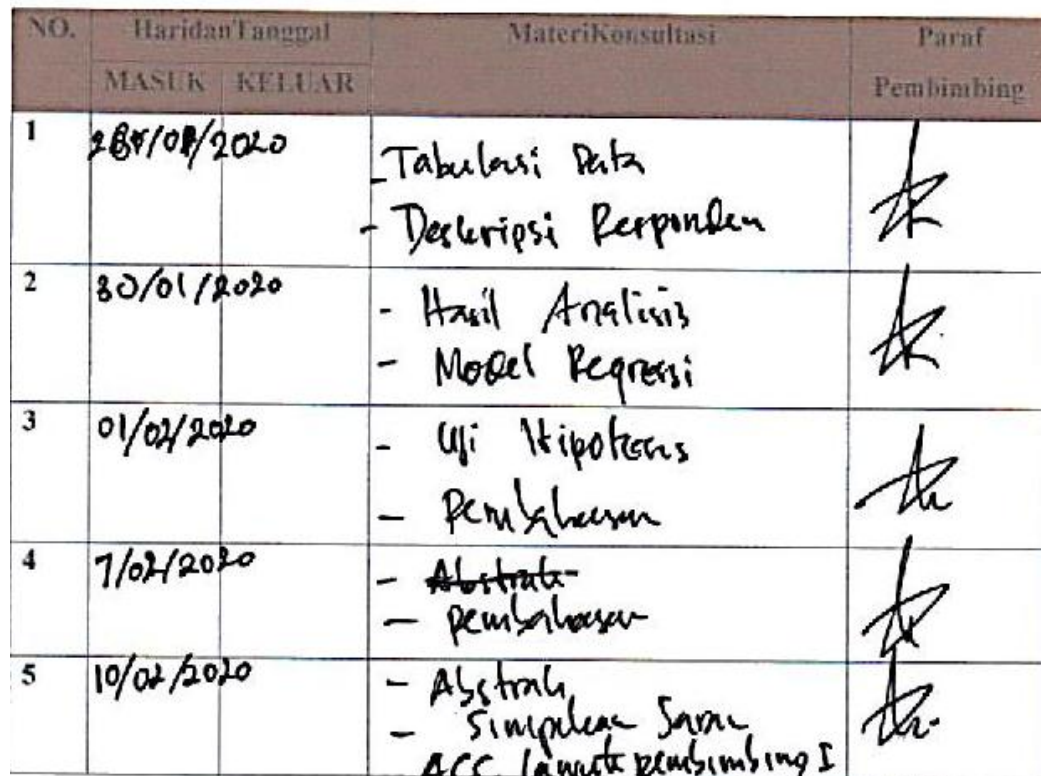 NO. HaridanTanggal MateriKonsultasi Paraf
MASUK KELUAR Pembimbing
1 /2020 - Tabulasi Data
- Deskripsi Responden
2 30/01/2020 - Hasil Analisis
- Model Regresi
3 01/02/2020 - Uji Hipotesis
- Pembahasan
4 7/02/2020 - Abstrak
- pembahasan
5 10/02/2020 - Abstrak
- Simpulan Saran
ACC lanjut pembimbing I